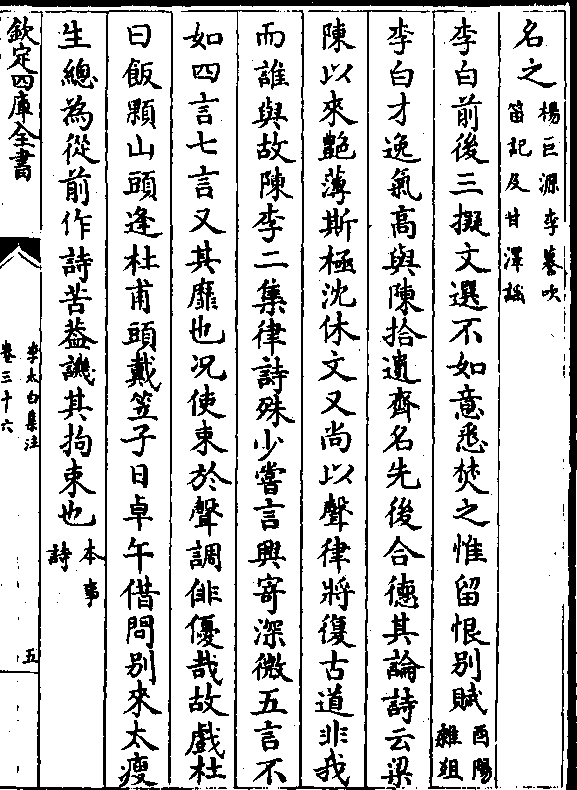 名之楊巨源李謩吹
笛記及甘澤謠
李白前後三擬文選不如意悉焚之惟留恨別賦酉陽
雜俎
李白才逸氣高與陳拾遺齊名先後合德其論詩云梁
陳以來艷薄斯極沈休文又尚以聲律將復古道非我
而誰與故陳李二集律詩殊少嘗言興寄深微五言不
如四言七言又其靡也况使束於聲調俳優哉故戲杜
曰飯顆山頭逢杜甫頭戴笠子日卓午借問别來太瘦
生總為從前作詩苦葢譏其拘束也本事
詩
欽定四庫全書
李太白集注
卷三十六
五